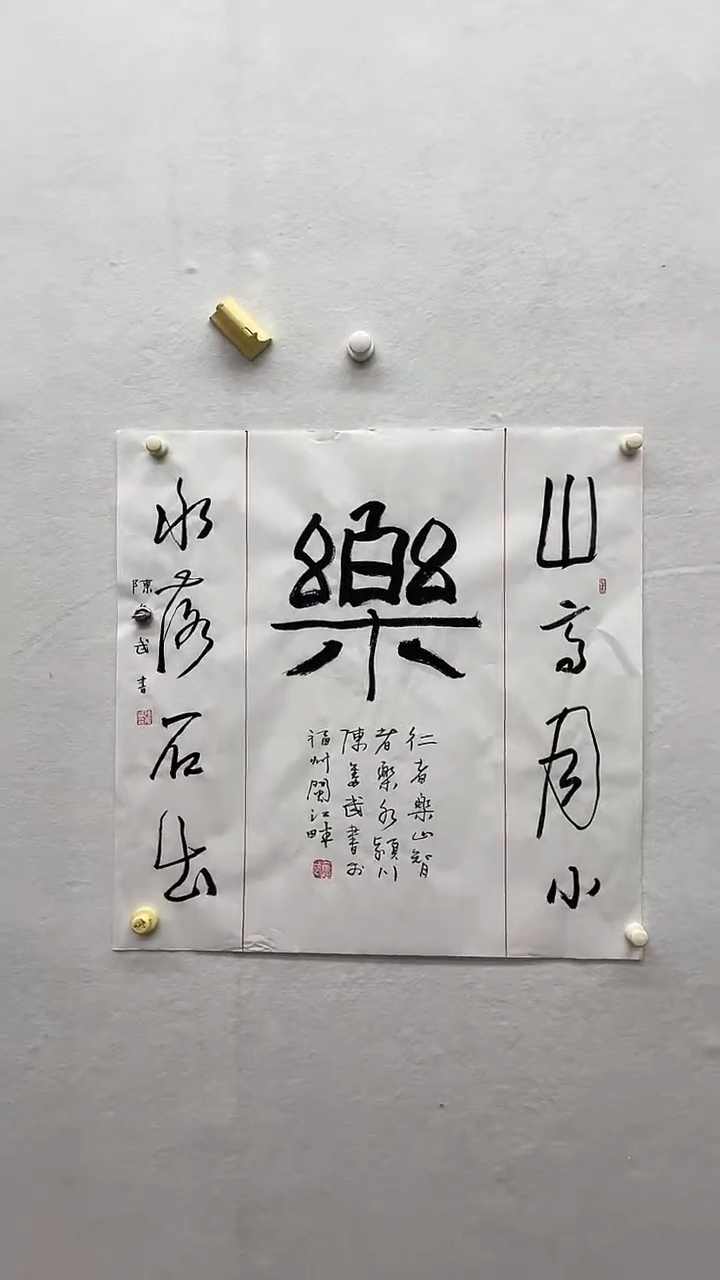 山高月小
樂
仁者樂山智
者樂水潁川
陳武書於
福州閩江畔
水落石出
陳武書